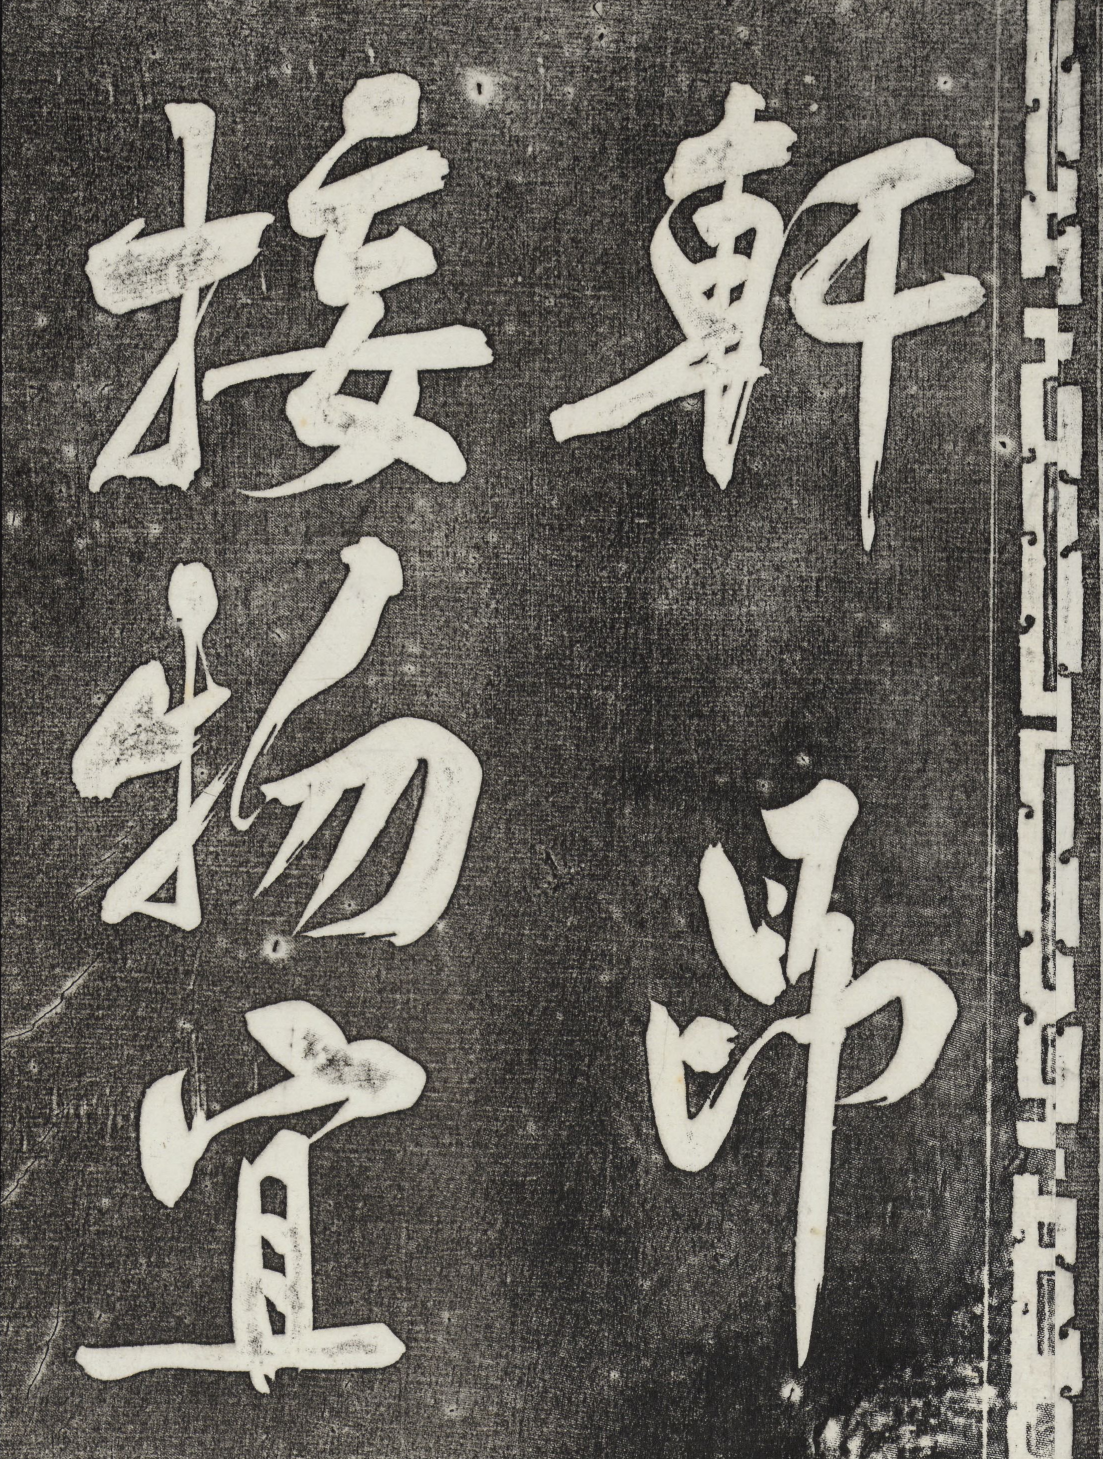 軒師
接物宜